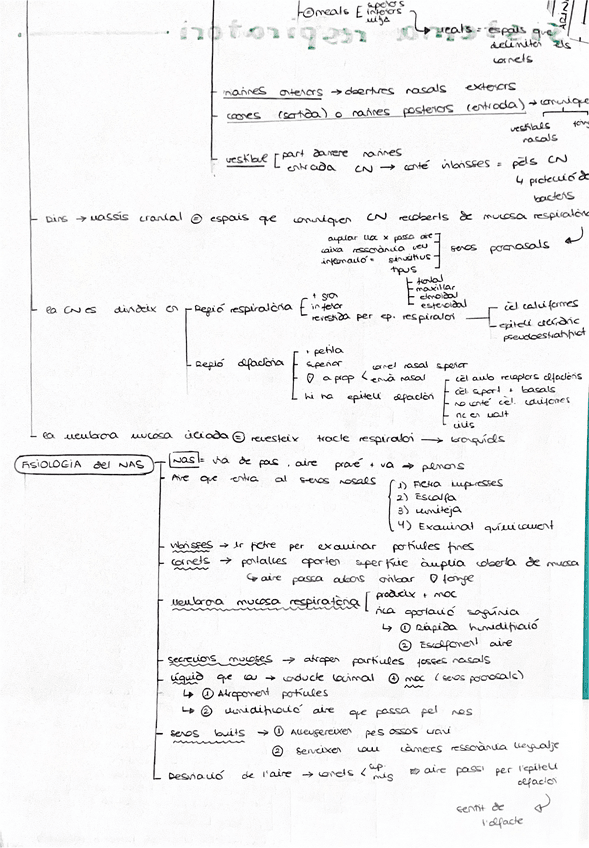 meats [ superiors
inferiors
mitjà
meats = espais que
delimiten els
cornets
narines anteriors → obertures nasals exteriors
coanes (sortida) o narines posteriors (entrada) →
vestíbuls
nasals
vestíbul [ part darrere narines
entrada CN → conté vibrisses = pèls CN
↳ protecció de
bacteris
Dins → massís cranial = espais que comuniquen CN recoberts de mucosa respiratòria
caixa ressonància veu
inflamació = sinusitis
sinus paranasals
tipus
frontal
maxillar
etmoidal
esfenoidal
La CN es divideix en
Regió respiratòria
+ gran
inferior
revestida per ep. respiratori
cèl. caliciformes
epiteli cilíndric
pseudoestratificat
Regió olfactòria
+ petita
superior
a prop < cornet nasal superior
envà nasal
hi ha epiteli olfactori
cèl amb receptors olfactoris
cèl suport + basals
no conté cèl. caliciformes
cilis
La membrana mucosa ciliada = revesteix tracte respiratori → bronquiols
FISIOLOGIA del NAS
NAS = via de pas, aire prové + va → pulmons
Aire que entra al sinus nasals
1) Filtra impureses
2) Escalfa
3) Humiteja
4) Examinat químicament
vibrisses → 1r filtre per examinar partícules fines
cornets → aporten superfície àmplia coberta de mucosa
↳ aire passa abans arribar faringe
membrana mucosa respiratòria [ produeix + moc
rica aportació sanguínia
↳ ① Ràpida humidificació
② Escalfament aire
secrecions mucoses → atrapen partícules fosses nasals
líquid que cau → conducte lacrimal ⊕ moc (sinus paranasals)
↳ ① Atrapament partícules
↳ ② Humidificació aire que passa pel nas
sinus buits → ① Alleugereixen pes ossos crani
② Serveixen com càmeres ressonància llenguatge
Desviació de l'aire → cornets < sup.
mig ⇒ aire passi per l'epiteli
olfactori
sentit de
l'olfacte